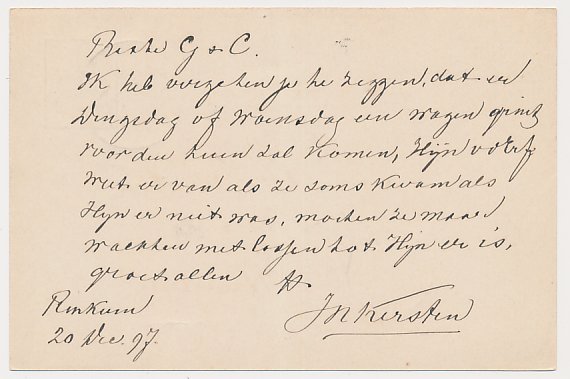 Beste G & C.
Ik heb vergeten je te zeggen, dat er
Dingsdag of Woensdag een wagen grint
voor den tuin zal komen, Hijn v d Erf
weet er van als ze soms kwam als
Hijn er niet was, moeten ze maar
wachten met lossen tot Hijn er is,
groet allen
Renkum
20 Dec. 97.
JN Kersten